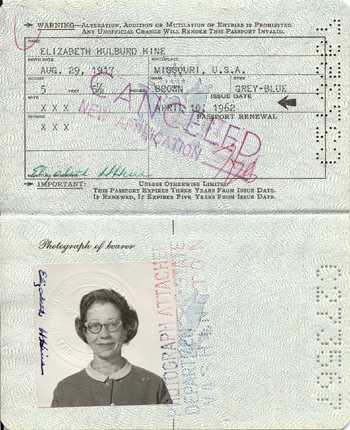 WARNING—ALTERATION, ADDITION OR MUTILATION OF ENTRIES IS PROHIBITED.
ANY UNOFFICIAL CHANGE WILL RENDER THIS PASSPORT INVALID.
NAME
ELIZABETH HULBURD HINE
BIRTH DATE BIRTHPLACE
AUG. 29, 1917 MISSOURI, U.S.A.
HEIGHT HAIR EYES
5 FEET BROWN GREY-BLUE
ISSUE DATE
X X X APRIL 10, 1962
PASSPORT RENEWAL
X X X
CANCELED
NEW APPLICATION
IMPORTANT: UNLESS OTHERWISE LIMITED
THIS PASSPORT EXPIRES THREE YEARS FROM ISSUE DATE.
IF RENEWED, IT EXPIRES FIVE YEARS FROM ISSUE DATE.
Photograph of bearer
PHOTOGRAPH ATTACHED
DEPARTMENT STATE